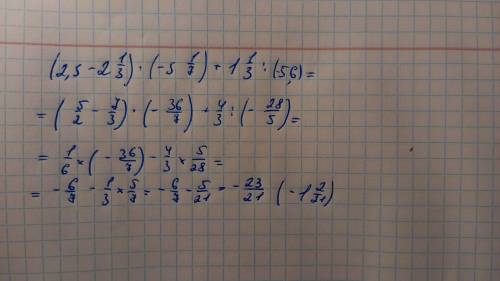 (2,5 - 2 1/3) · (-5 1/7) + 1 1/3 : (-5,6) =
= (5/2 - 7/3) · (- 36/7) + 4/3 : (- 28/5) =
= 1/6 × (- 36/7) - 4/3 × 5/28 =
= - 6/7 - 1/3 × 5/7 = - 6/7 - 5/21 = - 23/21 (-1 2/21)